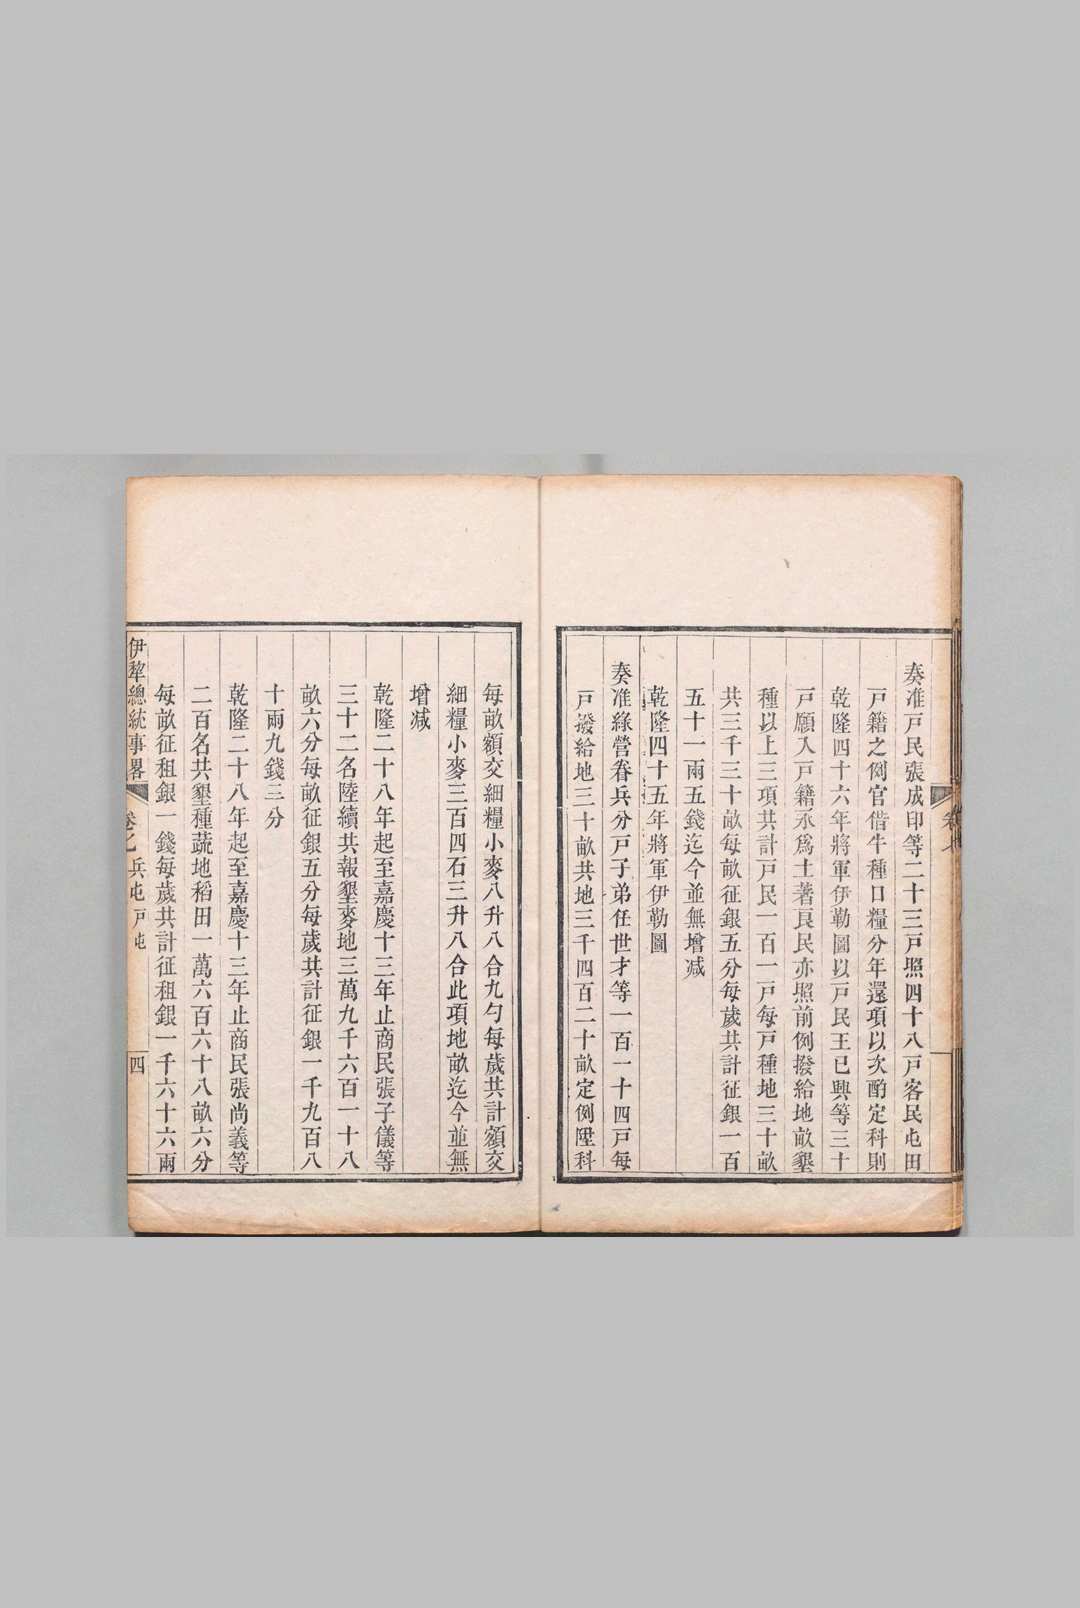 奏准戸民張成印等二十三戸照四十八戸客民屯田
戸籍之例官借牛種口糧分年還項以次酌定科則
乾隆四十六年將軍伊勒圖以戸民王已興等三十
戸願入戸籍永爲土著良民亦照前例撥給地畝墾
種以上三項共計戸民一百一戸每戸種地三十畝
共三千三十畝每畝征銀五分每歲共計征銀一百
五十一兩五錢迄今並無增減
乾隆四十五年將軍伊勒圖
奏准綠營眷兵分戸子弟任世才等一百一十四戸每
戸撥給地三十畝共地三千四百二十畝定例陞科
每畝額交細糧小麥八升八合九勺每歲共計額交
細糧小麥三百四石三升八合此項地畝迄今並無
增減
乾隆二十八年起至嘉慶十三年止商民張子儀等
三十二名陸續共報墾麥地三萬九千六百一十八
畝六分每畝征銀五分每歲共計征銀一千九百八
十兩九錢三分
乾隆二十八年起至嘉慶十三年止商民張尚義等
二百名共墾種蔬地稻田一萬六百六十八畝六分
每畝征租銀一錢每歲共計征租銀一千六十六兩
伊犂總統事畧 卷七 兵屯 戸屯 四